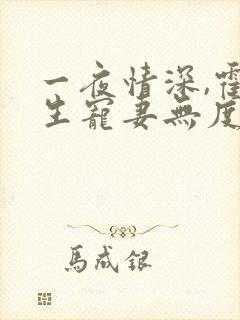 一夜情深,霍
生寵妻無度
馬成銀